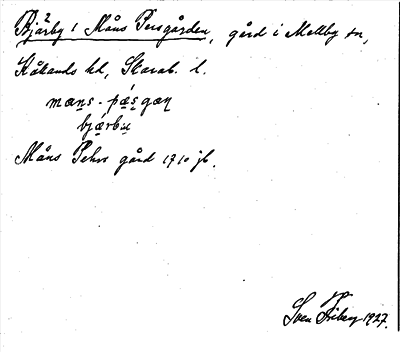 Bjärby 1² Måns Persgården, gård i Mellby sn,
Kålands hd, Skarab. l.
mæns - pæsgæɳ
bjærbu
Måns Pehrs gård 1710 jb.
Sven Friberg 1927.